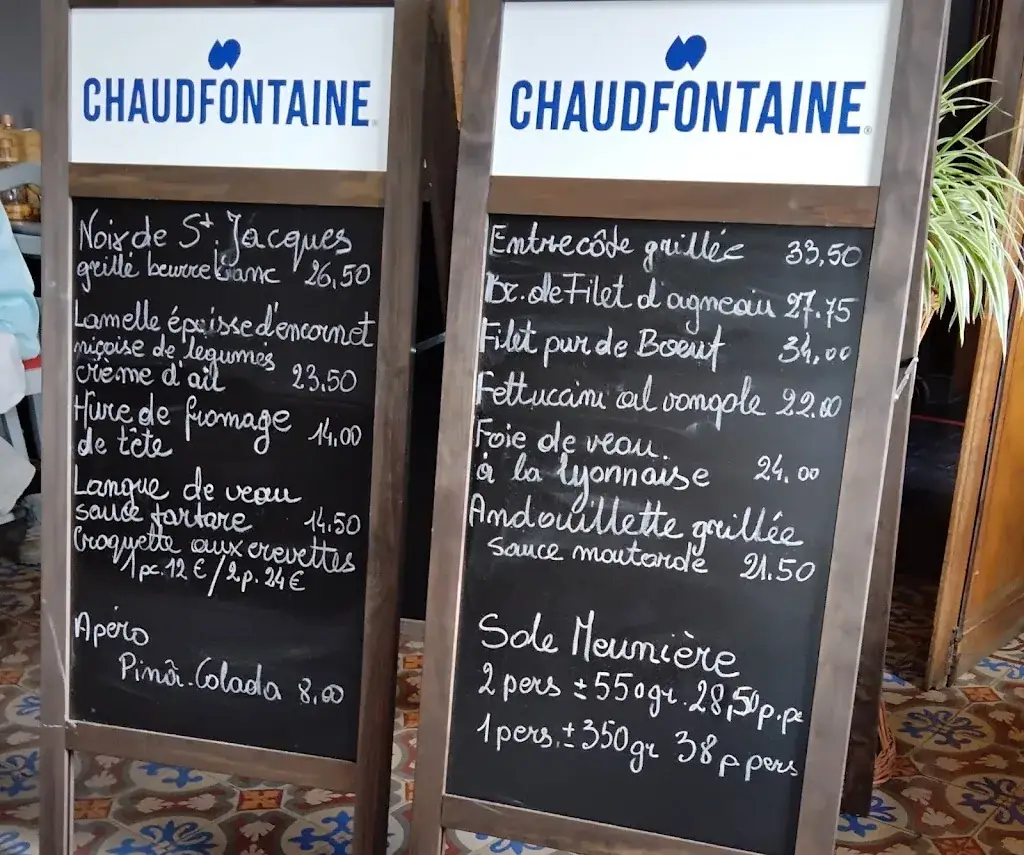 CHAUDFONTAINE
Noix de St. Jacques
grillé beurre blanc 26,50
Lamelle épaisse d'encornet
niçoise de légumes
crème d'ail 23.50
Hure de fromage
de tête 14,00
Langue de veau
sauce tartare 14.50
Croquette aux crevettes
1 pc. 12 € / 2 p. 24 €
Apéro
Pinâ-Colada 8,00
CHAUDFONTAINE
Entrecôte grillée 33,50
Br. de Filet d'agneau 27.75
Filet pur de Boeuf 34,00
Fettucani al vongole 22.00
Foie de veau.
à la lyonnaise 24.00
Andouillette grillée
sauce moutarde 21.50
Sole Meunière
2 pers ± 550gr. 28,50 p.pe
1 pers. ± 350gr 38 p pers